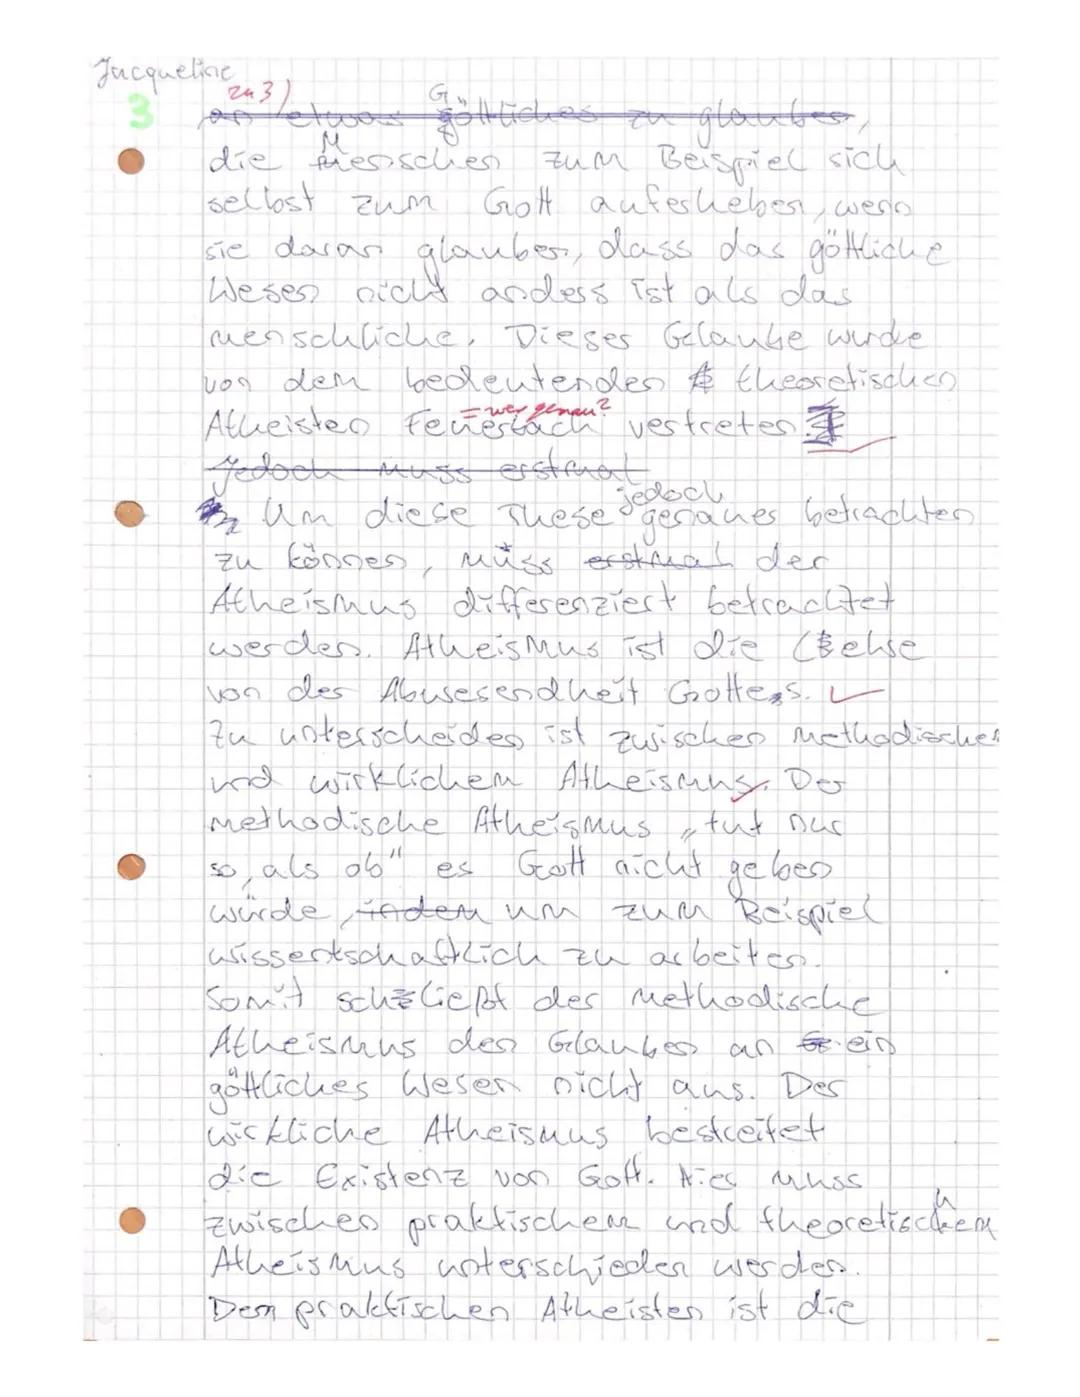 Jacqueline
zu 3)
3
G
an etwas göttliches zu glauben,
die Menschen zum Beispiel sich
selbst zum Gott auferheben, wenn
sie daran glauben, dass das göttliche
Wesen nicht anders ist als das
menschliche. Dieser Glaube wurde
von dem bedeutenden theoretischen
= wer genau?
Atheisten Feuerbach vertreten.
Jedoch muss erstmal
jedoch
Um diese These genauer betrachten
zu können, muss erstmal der
Atheismus differenziert betrachtet
werden. Atheismus ist die Lehre
von der Abwesenheit Gottes.
Zu unterscheiden ist zwischen methodischen
und wirklichem Atheismus. Der
methodische Atheismus „tut nur
so, als ob" es Gott nicht geben
würde, indem um zum Beispiel
wissentschaftlich zu arbeiten.
Somit schließt der methodische
Atheismus den Glauben an ein
göttliches Wesen nicht aus. Der
wirkliche Atheismus bestreitet
die Existenz von Gott. Hier muss
zwischen praktischem und theoretischem
Atheismus unterschieden werden.
Dem praktischen Atheisten ist die